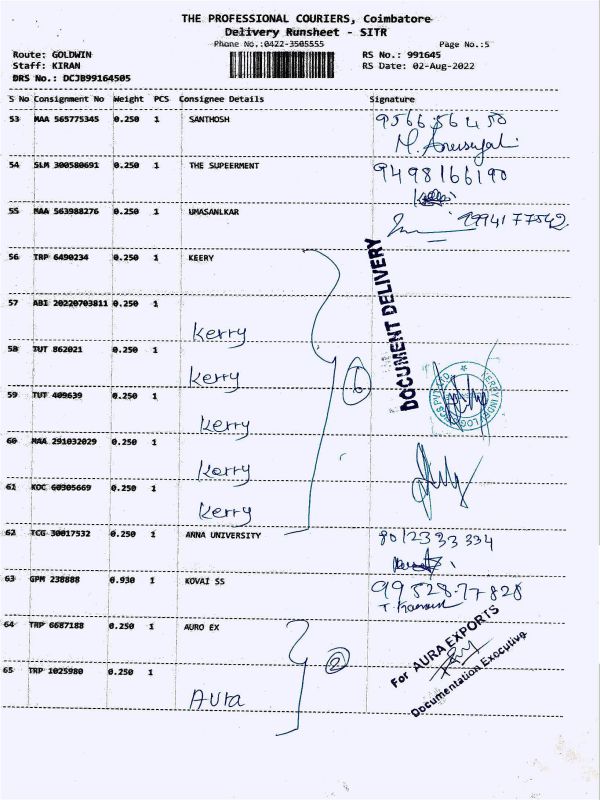 THE PROFESSIONAL COURIERS, Coimbatore
Delivery Runsheet - SITR
Phone No.:0422-3505555 Page No.:5
Route: GOLDWIN RS No.: 991645
Staff: KIRAN RS Date: 02-Aug-2022
DRS No.: DCJB99164505
S No Consignment No Weight PCS Consignee Details Signature
53 MAA 565775345 0.250 1 SANTHOSH
54 SLM 300580691 0.250 1 THE SUPEERMENT 9498166190
55 MAA 563988276 0.250 1 UMASANLKAR 9994177542
56 TRP 6490234 0.250 1 KEERY
57 ABI 20220703811 0.250 1
Kerry
58 TUT 862021 0.250 1
Kerry
6
DOCUMENT DELIVERY
59 TUT 409639 0.250 1
Kerry
60 MAA 291032029 0.250 1
Kerry
61 KOC 60305669 0.250 1
Kerry
62 TCG 30017532 0.250 1 ANNA UNIVERSITY 8012333334
63 GPM 238888 0.930 1 KOVAI SS 99528-77828
64 TRP 6687188 0.250 1 AURO EX
2
For AURA EXPORTS
Documentation Executive
65 TRP 1025980 0.250 1
Aura